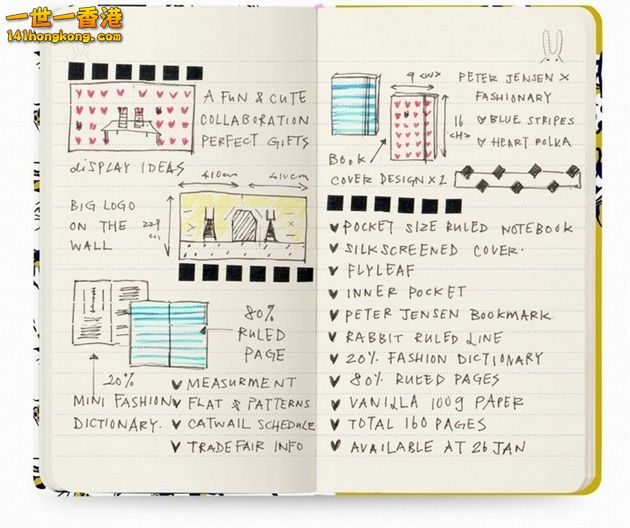 一世一香港
141hongkong.com
A FUN & CUTE
COLLABORATION
PERFECT GIFTS
DISPLAY IDEAS
410cm
410cm
BIG LOGO
ON THE
WALL
229
cm
80%
RULED
PAGE
20%
MINI FASHION
DICTIONARY.
MEASURMENT
FLAT & PATTERNS
CATWAIL SCHEDULE
TRADE FAIR INFO
9 <W>
16
<H>
PETER JENSEN X
FASHIONARY
BLUE STRIPES
HEART POLKA
BOOK
COVER DESIGN X2
POCKET SIZE RULED NOTEBOOK
SILKSCREENED COVER.
FLYLEAF
INNER POCKET
PETER JENSEN BOOKMARK
RABBIT RULED LINE
20% FASHION DICTIONARY
80% RULED PAGES
VANILLA 100g PAPER
TOTAL 160 PAGES
AVAILABLE AT 26 JAN